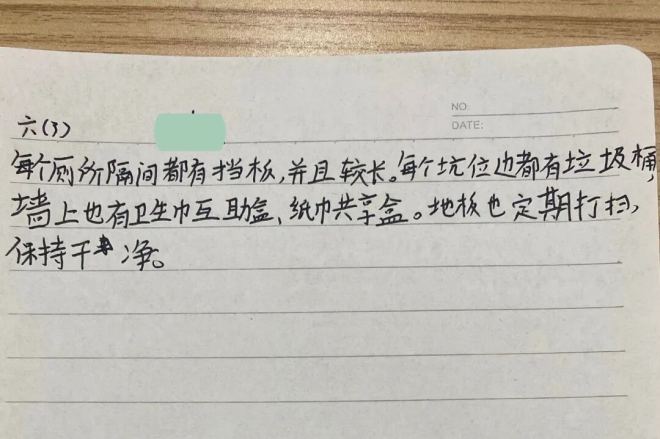 NO:
DATE:
六(3)
每个厕所隔间都有挡板,并且较长。每个坑位边都有垃圾桶,
墙上也有卫生巾互助盒、纸巾共享盒。地板也定期打扫,
保持干净。